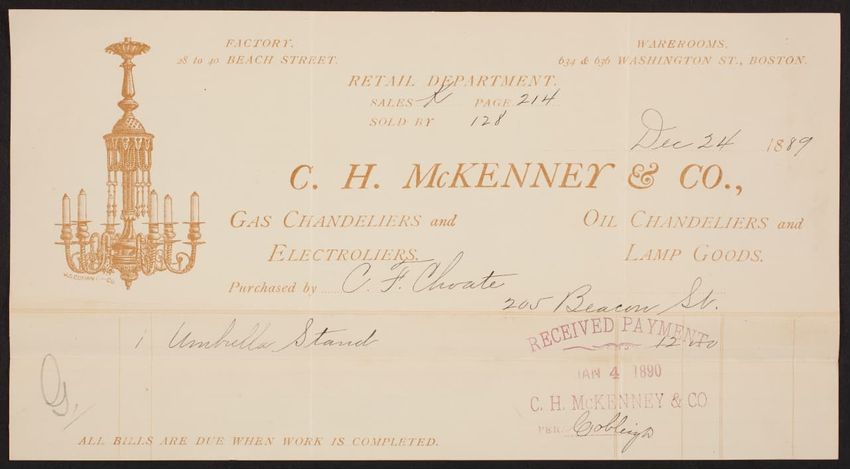 FACTORY.
28 to 40 BEACH STREET.
WAREROOMS.
634 & 636 WASHINGTON ST., BOSTON.
RETAIL DEPARTMENT.
SALES X PAGE 214
SOLD BY 128
Dec 24 1889
C. H. McKENNEY & CO.,
GAS CHANDELIERS and
ELECTROLIERS.
OIL CHANDELIERS and
LAMP GOODS.
Purchased by C. F. Choate
205 Beacon St.
1 Umbrella Stand 12 00
RECEIVED PAYMENT
JAN 4 1890
C. H. McKENNEY & CO
PER Cobleigh
G.
ALL BILLS ARE DUE WHEN WORK IS COMPLETED.